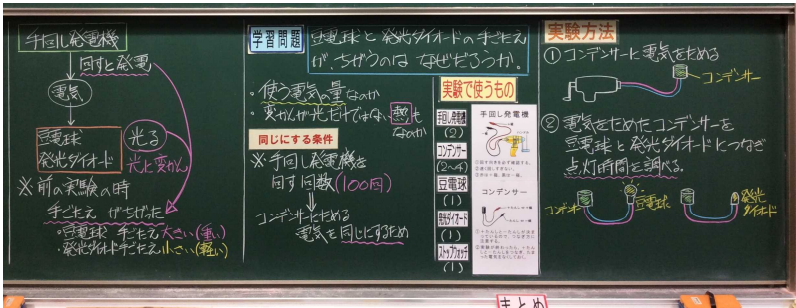 手回し発電機
回すと発電
電気
豆電球
発光ダイオード
光る
光に変かん
※前の実験の時
手ごたえがちがった
・豆電球 手ごたえ大きい(重い)
・発光ダイオード手ごたえ小さい(軽い)
学習問題
豆電球と発光ダイオードの手ごたえ
が、ちがうのはなぜだろうか。
・使う電気の量なのか
・変かんが光だけではない熱も
なのか
同じにする条件
※手回し発電機を
回す回数(100回)
コンデンサーにためる
電気を同じにするため
実験で使うもの
手回し発電機
(2)
コンデンサー
(2〜4)
豆電球
(1)
発光ダイオード
(1)
ストップウォッチ
(1)
手回し発電機
コンデンサー
実験方法
① コンデンサーに電気をためる
コンデンサー
② 電気をためたコンデンサーを
豆電球と発光ダイオードにつなぎ
点灯時間を調べる。
コンデンサー
豆電球
発光
ダイオード
まとめ